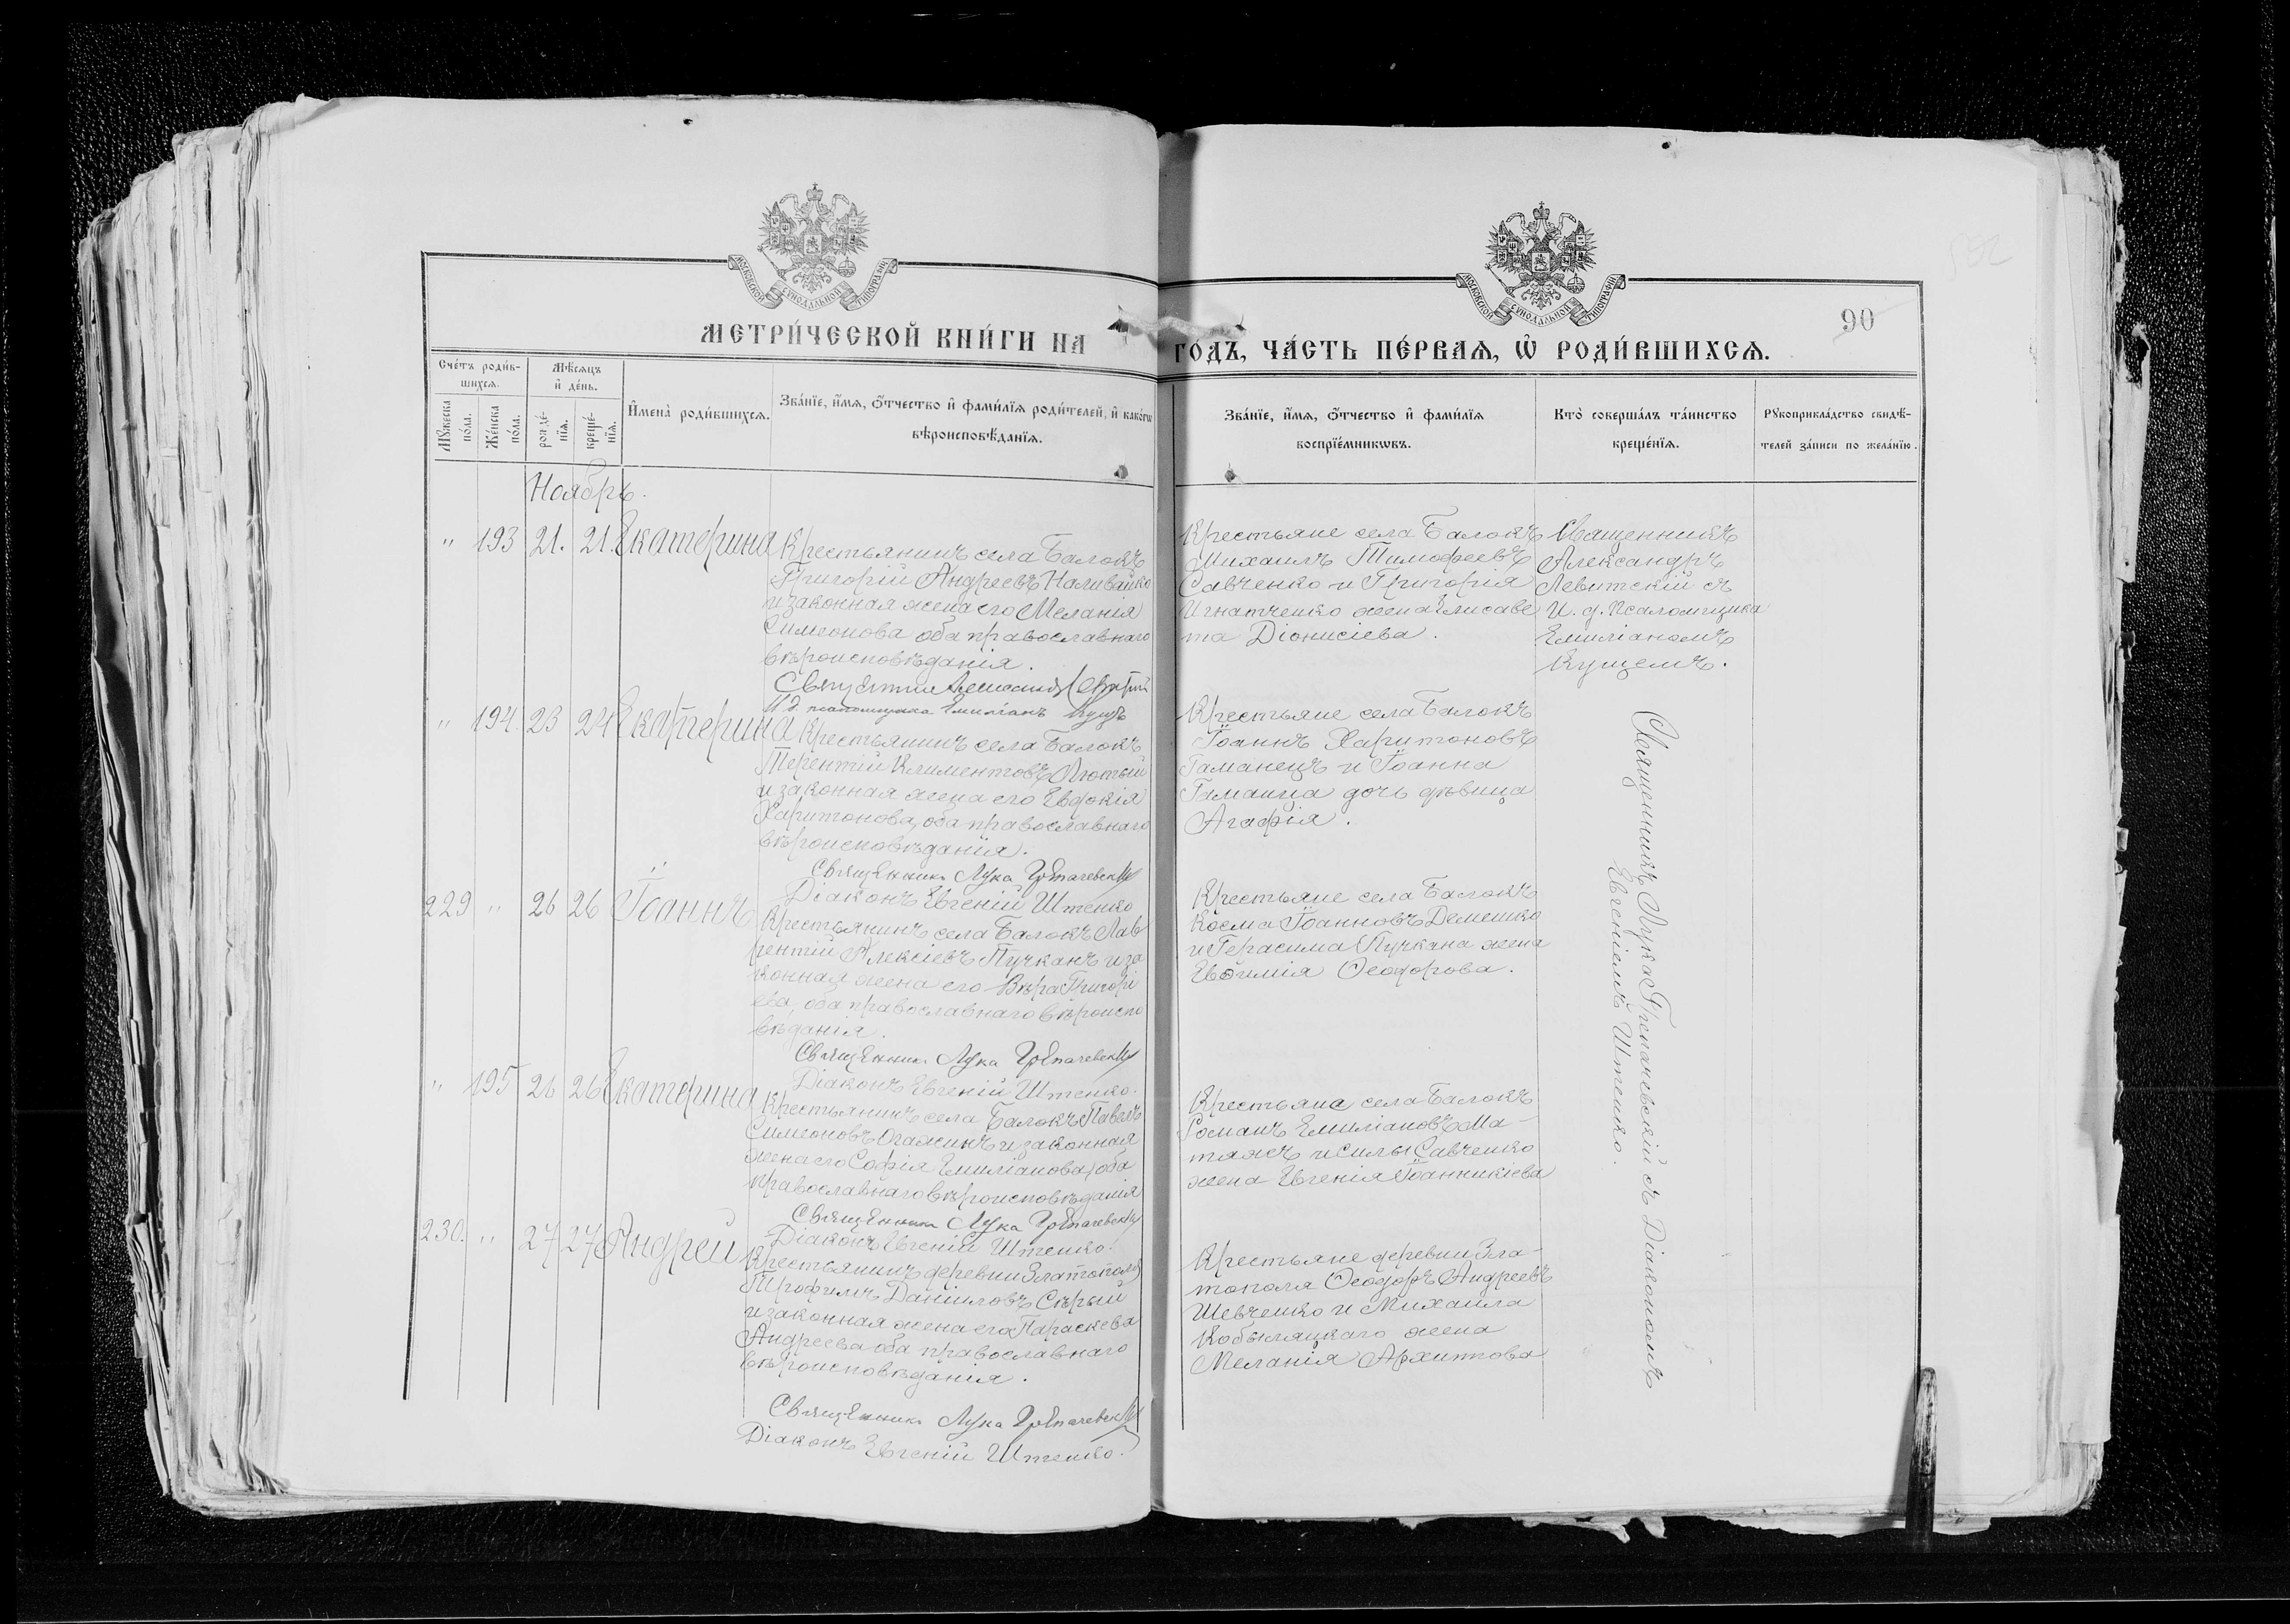 МОСКОВСКОЙ СѴНОДАЛЬНОЙ ТИПОГРАФІИ
МОСКОВСКОЙ СѴНОДАЛЬНОЙ ТИПОГРАФІИ
90
МЕТРИ́ЧЕСКОЙ КНИ́ГИ НА
ГО́ДЪ, ЧА́СТЬ ПЕ́РВАѦ, Ѽ РОДИ́ВШИХСѦ.
Сче́тъ роди́в-
шихсѧ.
Мꙋ́жеска по́ла.
Же́нска по́ла.
Мѣ́сѧцъ
и҆ де́нь.
рожде́-
нїѧ.
креще́-
нїѧ.
И҆мена̀ роди́вшихсѧ.
Зва́нїе, и҆́мѧ, ѻ҆́тчество и҆ фами́лїѧ роди́телей, и҆ како́гѡ
вѣроисповѣ́данїѧ.
Зва́нїе, и҆́мѧ, ѻ҆́тчество и҆ фами́лїѧ
воспрїе́мникѡвъ.
Кто̀ соверша́лъ та́инство
креще́нїѧ.
Рꙋкоприкла́дство свидѣ́-
телей за́писи по жела́нїю.
Ноябрь.
" 193 21. 21. Екатерина
Крестьянинъ села Балокъ
Григорій Андреевъ Наливайко
и законная жена его Меланія
Симеонова оба православнаго
вѣроисповѣданія.
И. д. псаломщика Емиліанъ Кущъ
Крестьяне села Балокъ
Михаилъ Тимофеевъ
Савченко и Григорія
Игнатченко жена Елисаве
та Діонисіева.
Священникъ
Александръ
Левитскій съ
И. д. псаломщика
Емиліаномъ
Кущемъ.
" 194. 23 24 Екатерина
Крестьянинъ села Балокъ
Терентій Климентовъ Лютый
и законная жена его Евдокія
Харитонова, оба православнаго
вѣроисповѣданія.
Священникъ Лука Грепачевскій
Діаконъ Евгеній Штенко
Крестьяне села Балокъ
Іоаннъ Харитоновъ
Гаманецъ и Іоанна
Гаманца дочь дѣвица
Агафія.
Священникъ Лука Грепачевскій съ Діакономъ
Евгеніемъ Штенко.
229 " 26 26 Іоаннъ
Крестьянинъ села Балокъ Лав
рентій Алексіевъ Пучканъ и за
конная жена его Вѣра Григорі
ева, оба православнаго вѣроиспо
вѣданія.
Священникъ Лука Грепачевскій
Діаконъ Евгеній Штенко.
Крестьяне села Балокъ
Косма Іоанновъ Демешко
и Герасима Пучкана жена
Евѳимія Ѳеодорова.
" 195 26 26 Екатерина
Крестьянинъ села Балокъ Павелъ
Симеоновъ и законная
жена его Софія Емиліанова, оба
православнаго вѣроисповѣданія
Священникъ Лука Грепачевскій
Діаконъ Евгеній Штенко.
Крестьяне села Балокъ
Романъ Емиліановъ Ма-
тяжъ и Силы Савченко
жена Евгенія Іоанникіева
230. " 27 27 Андрей
Крестьянинъ деревни Златополя
Трофимъ Даніиловъ Сѣрый
и законная жена его Параскева
Андреева оба православнаго
вѣроисповѣданія.
Священникъ Лука Грепачевскій
Діаконъ Евгеній Штенко.
Крестьяне деревни Зла-
тополя Ѳеодоръ Андреевъ
Шевченко и Михаила
Кобыляцкаго жена
Меланія Архиппова